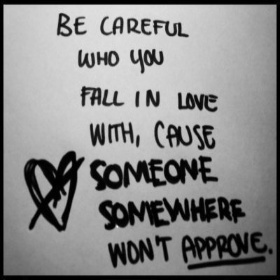 BE CAREFUL
WHO YOU
FALL IN LOVE
WITH, CAUSE
SOMEONE
SOMEWHERE
WON'T APPROVE.